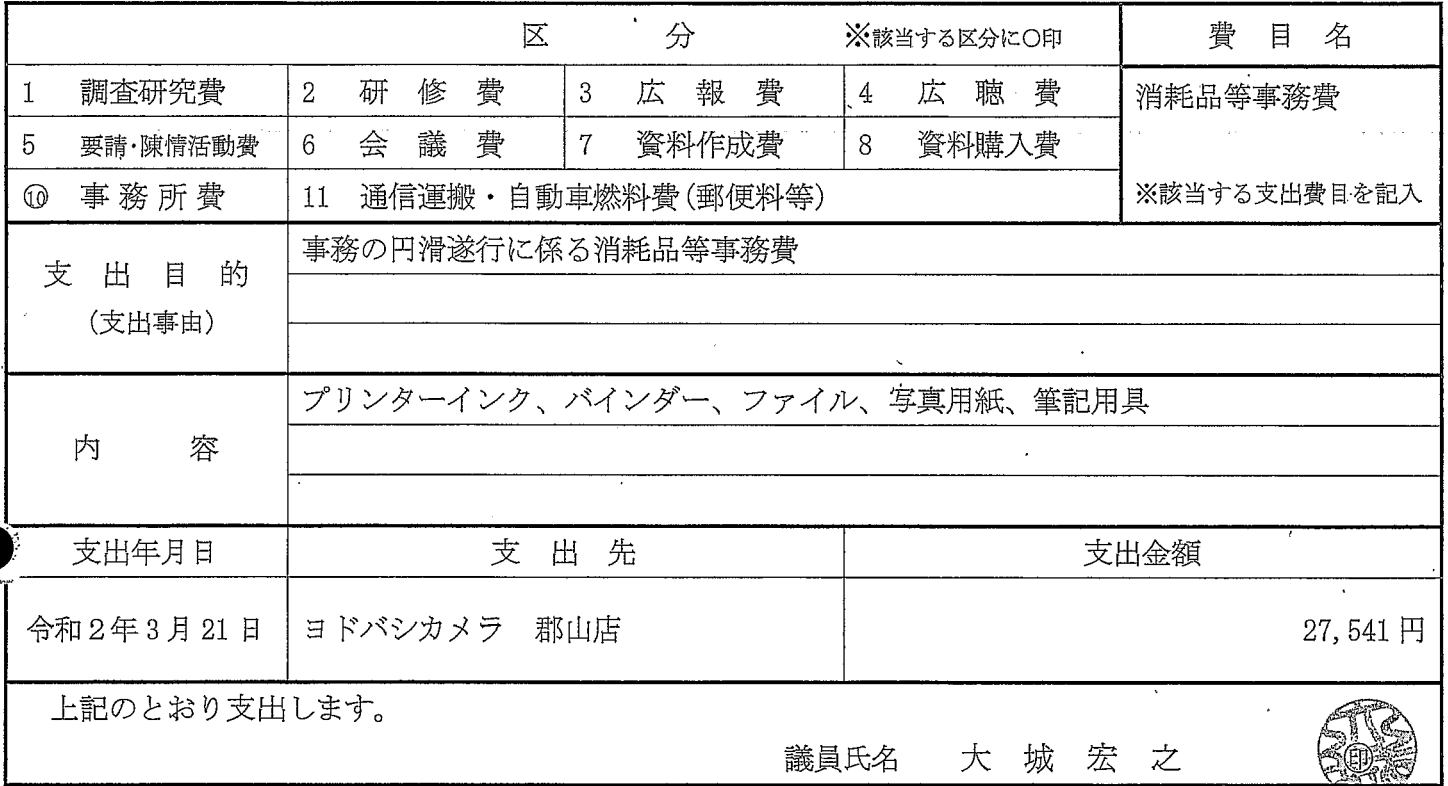 区分 ※該当する区分に○印 費目名
1 調査研究費 2 研修費 3 広報費 4 広聴費 消耗品等事務費
5 要請・陳情活動費 6 会議費 7 資料作成費 8 資料購入費
⑩ 事務所費 11 通信運搬・自動車燃料費(郵便料等) ※該当する支出費目を記入
支出目的 事務の円滑遂行に係る消耗品等事務費
(支出事由)
内容 プリンターインク、バインダー、ファイル、写真用紙、筆記用具
支出年月日 支出先 支出金額
令和2年3月21日 ヨドバシカメラ 郡山店 27,541円
上記のとおり支出します。
議員氏名 大城宏之 印